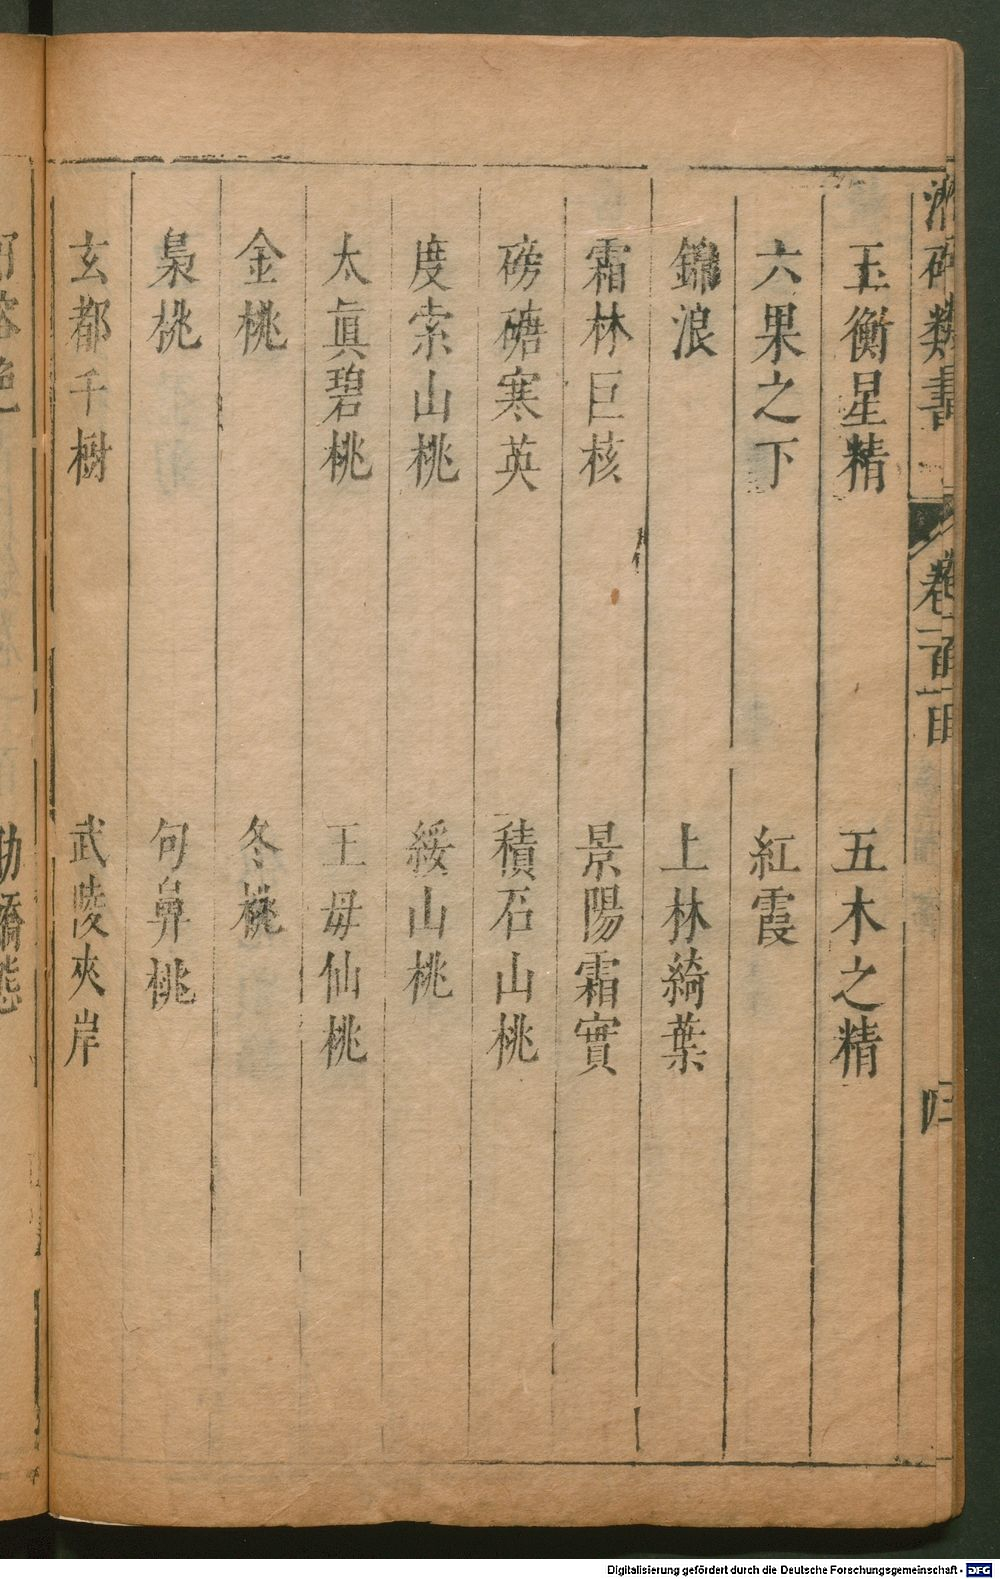 玉衡星精　五木之精
六果之下　紅霞
錦浪　上林綺葉
霜林巨核　景陽霜實
磅磄寒英　積石山桃
度索山桃　綏山桃
太眞碧桃　王母仙桃
金桃　冬桃
梟桃　句鼻桃
玄都千樹　武陵夾岸
類書
Digitalisierung gefördert durch die Deutsche Forschungsgemeinschaft - DFG